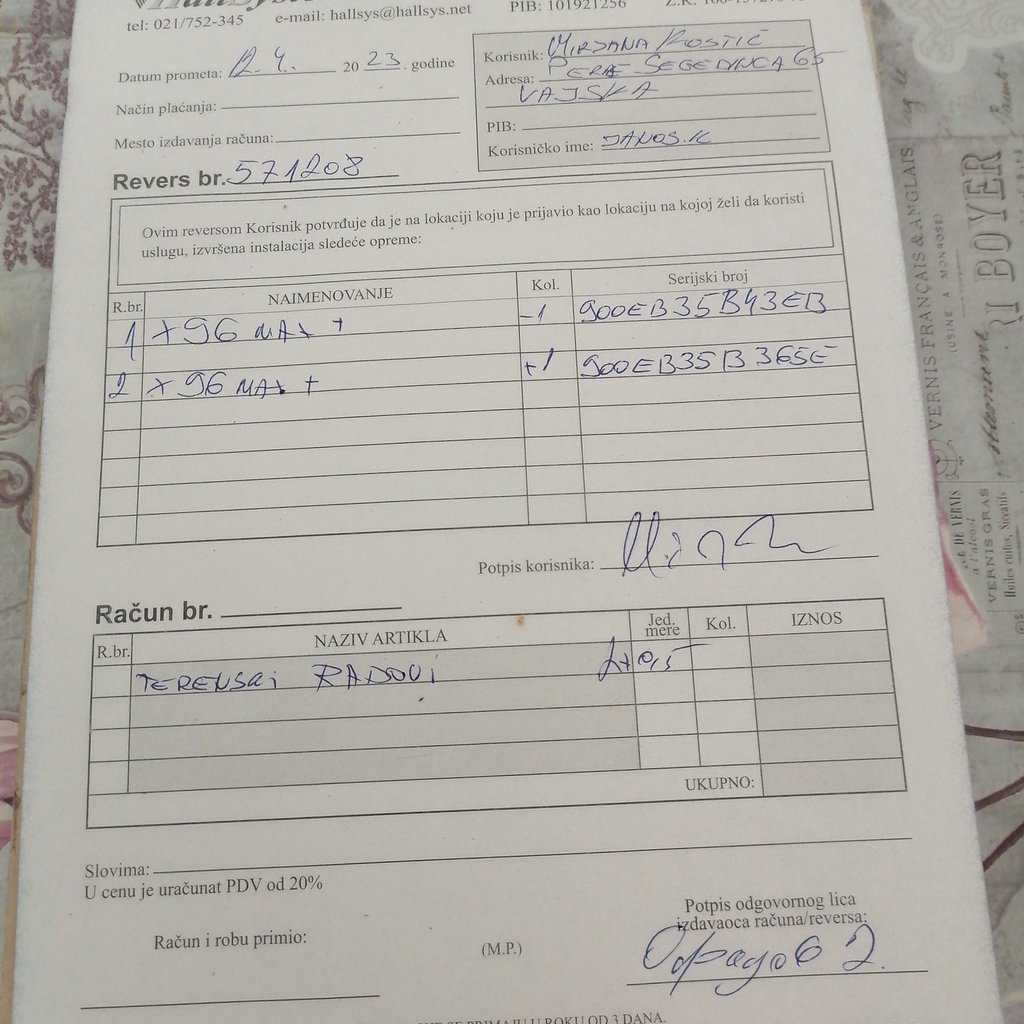 HallSys
tel: 021/752-345 e-mail: hallsys@hallsys.net PIB: 101921256
Datum prometa: 12.4. 2023. godine
Način plaćanja:
Mesto izdavanja računa:
Korisnik: MIRJANA KOSTIĆ
Adresa: PERE SEGEDINCA 65
VAJSKA
PIB:
Korisničko ime: JANOS.K
Revers br. 571208
Ovim reversom Korisnik potvrđuje da je na lokaciji koju je prijavio kao lokaciju na kojoj želi da koristi
uslugu, izvršena instalacija sledeće opreme:
R.br. NAIMENOVANJE Kol. Serijski broj
1 X96 MAX + -1 900EB35B43EB
2 X96 MAX + +1 900EB35B365E
Potpis korisnika:
Račun br.
R.br. NAZIV ARTIKLA Jed. mere Kol. IZNOS
TERENSKI RADOVI 1+0,5
UKUPNO:
Slovima:
U cenu je uračunat PDV od 20%
Potpis odgovornog lica
izdavaoca računa/reversa:
Račun i robu primio:
(M.P.)
SE PRIMAJU U ROKU OD 3 DANA.
VERNIS FRANÇAIS & ANGLAIS
(USINE A MONROSE)
BOYER
VERNIS GRAS